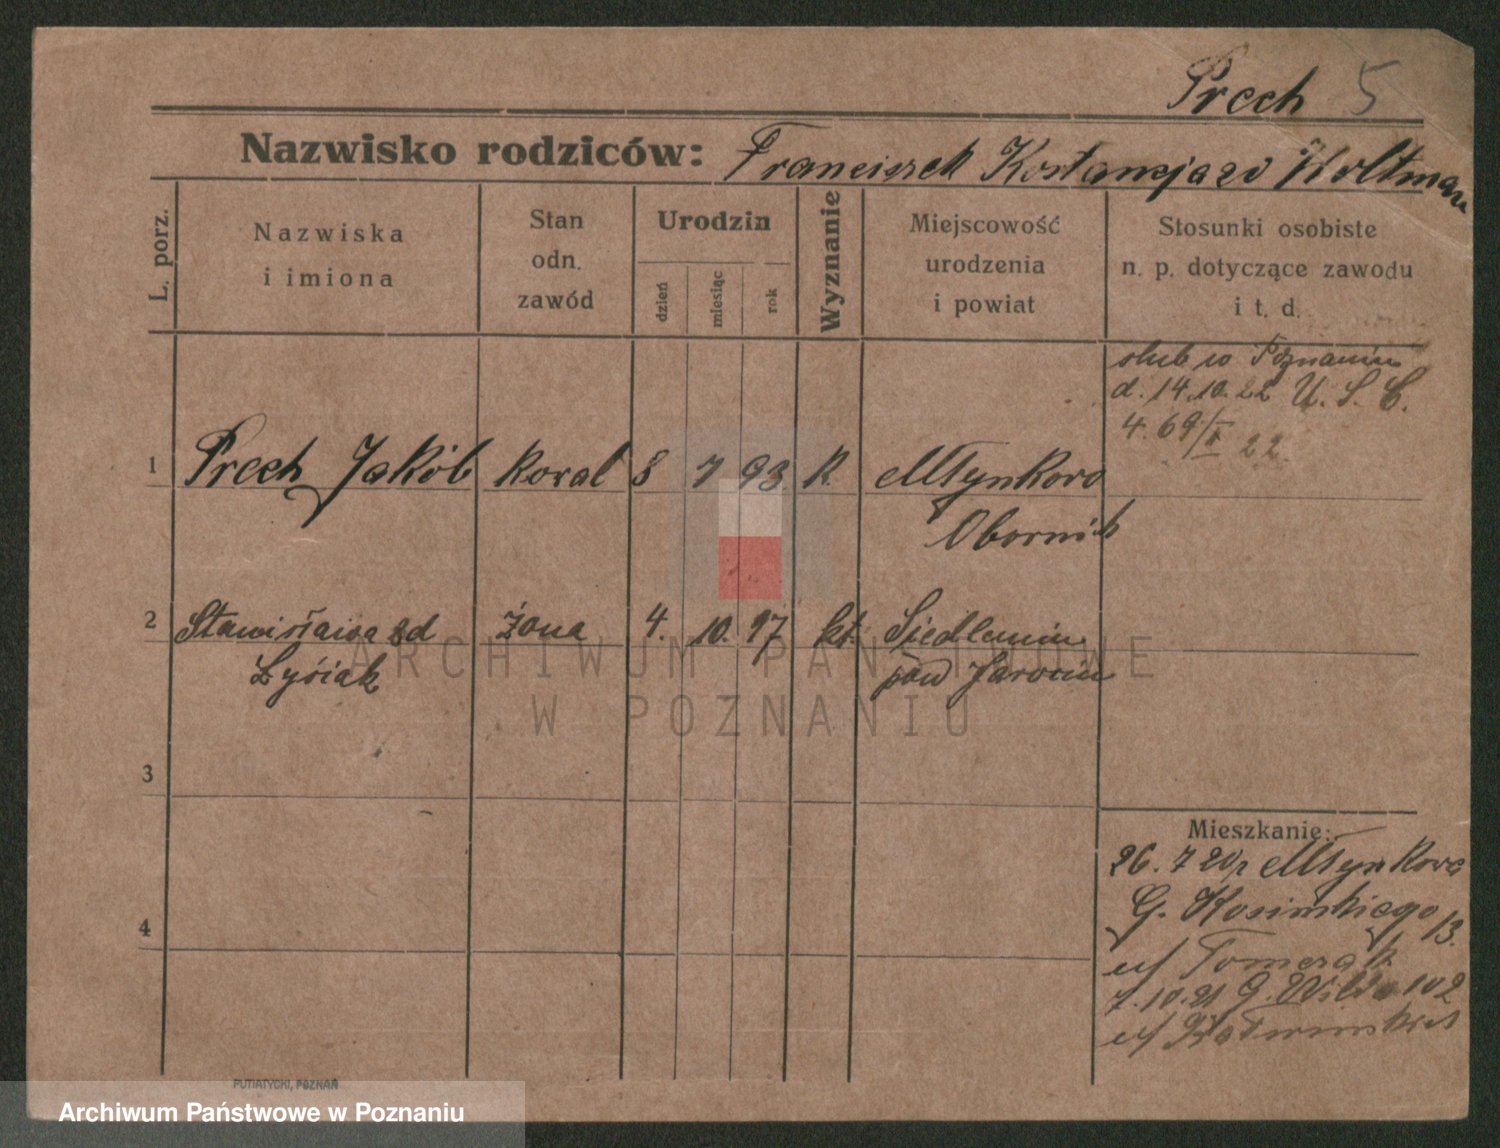 Prech 5
Nazwisko rodziców: Franciszek Kostancja zd Woltman
L. porz.
Nazwiska
i imiona
Stan
odn.
zawód
Urodzin
dzień
miesiąc
rok
Wyznanie
Miejscowość
urodzenia
i powiat
Stosunki osobiste
n. p. dotyczące zawodu
i t. d.
slub w Poznaniu
d. 14.10.22 U. S. C.
22.
1 Prech Jakób Kowal 8 7 93 k. Młynkowo
Obornik
2 Stanisława zd Żona 4. 10. 97 kt. Siedlemin
Łyśiak pow Jarocin
3
4
Mieszkanie:
26. 7 20 z Młynkowo
G. Kosinskiego 13.
u/ Tomczak
7.10.21 G. Wilda 102
u/
PUTIATYCKI, POZNAŃ
ARCHIWUM PAŃSTWOWE
W POZNANIU
Archiwum Państwowe w Poznaniu